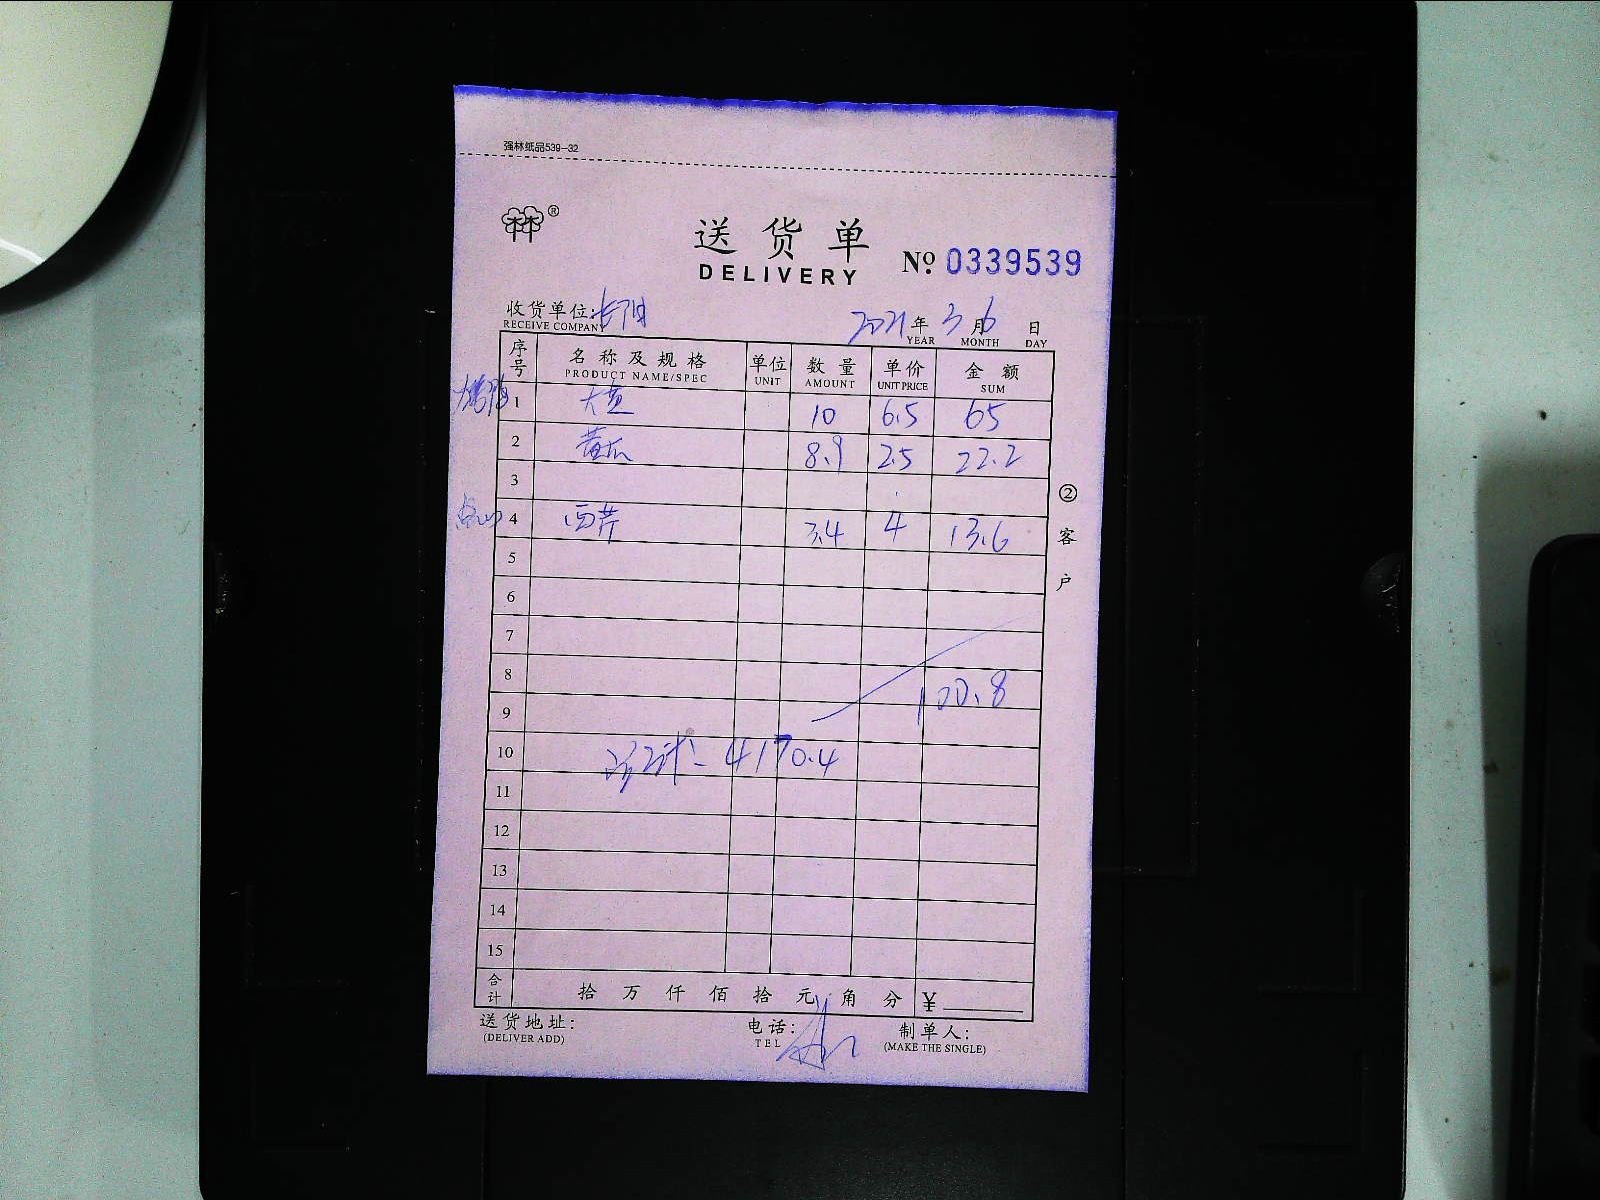 强林纸品539-32
林林®
送货单
DELIVERY
№ 0339539
收货单位: 长阳 2021年 3月 6日
RECEIVE COMPANY YEAR MONTH DAY
序号 名称及规格 单位 数量 单价 金额
PRODUCT NAME/SPEC UNIT AMOUNT UNIT PRICE SUM
1 大葱 10 6.5 65
2 黄瓜 8.9 2.5 22.2
3
点心 4 西芹 3.4 4 13.6
5
6
7
8 100.8
9
10 4170.4
11
12
13
14
15
合计 拾 万 仟 佰 拾 元 角 分 ¥
送货地址: 电话: 制单人:
(DELIVER ADD) TEL (MAKE THE SINGLE)
②客户